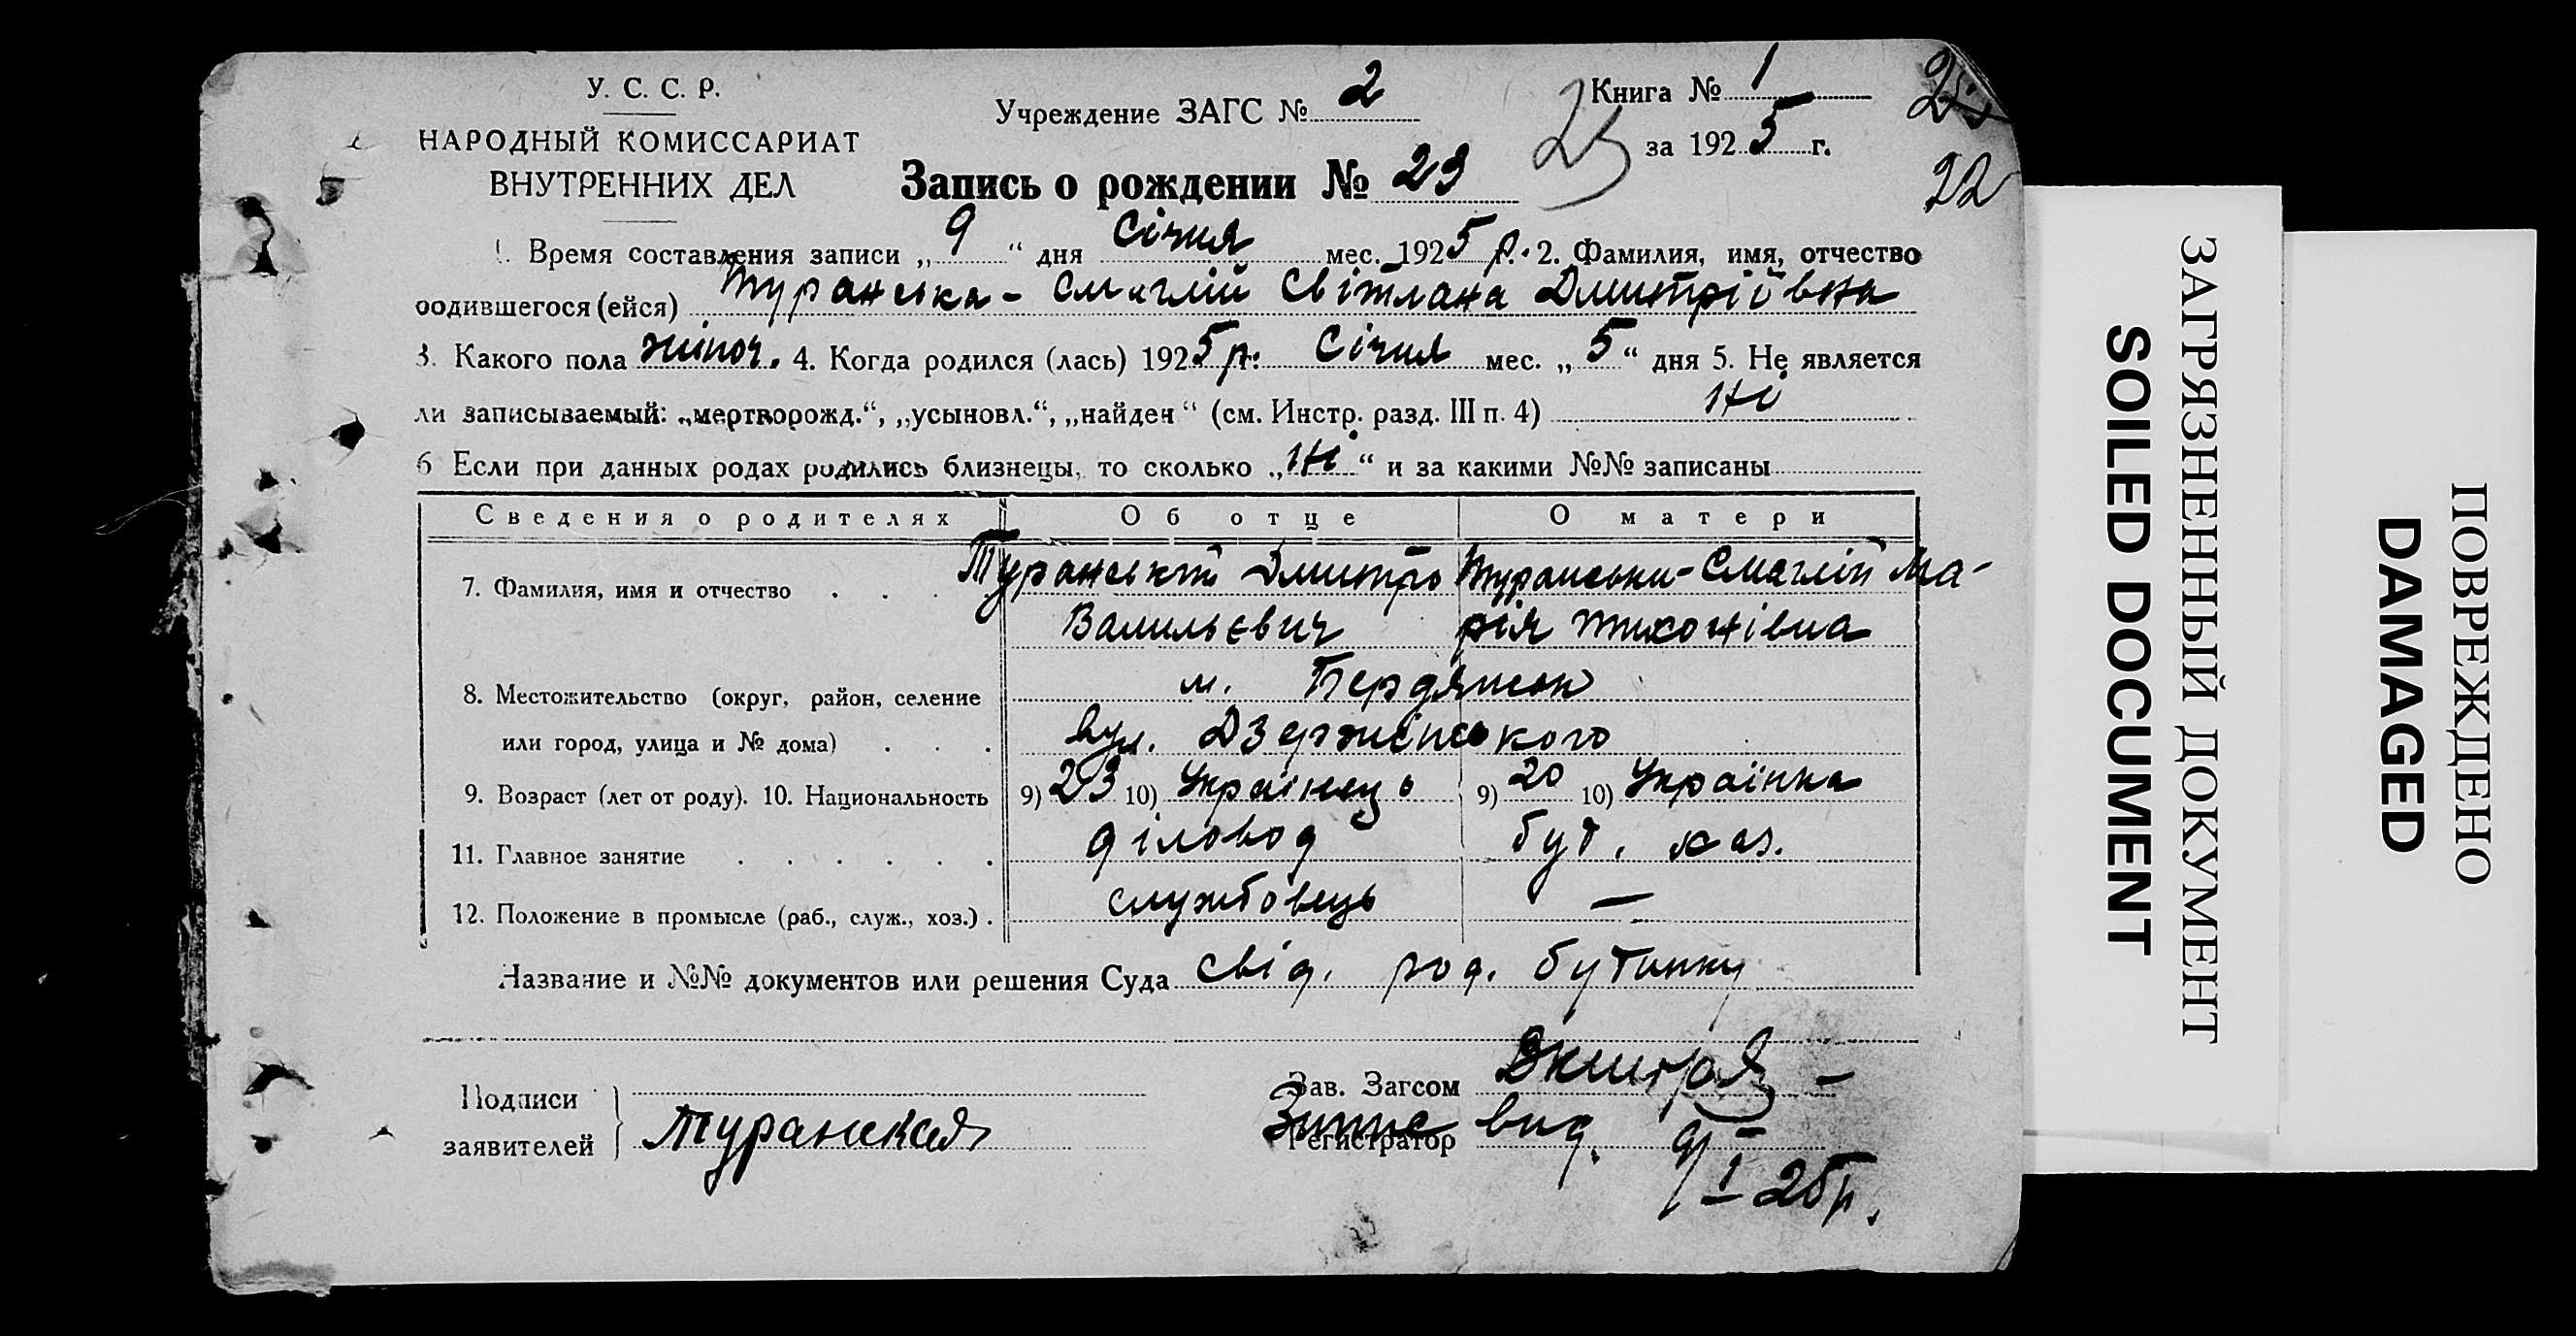 У. С. С. Р.
НАРОДНЫЙ КОМИССАРИАТ
ВНУТРЕННИХ ДЕЛ
Учреждение ЗАГС № 2
Книга № 1
за 1925 г.
25
22
Запись о рождении № 23
1. Время составления записи „9“ дня Січня мес. 1925 р. 2. Фамилия, имя, отчество
родившегося (ейся) Туранська-Смаглій Світлана Дмитріївна
3. Какого пола жіноч. 4. Когда родился (лась) 1925 р. Січня мес. „5“ дня 5. Не является
ли записываемый: „мертворожд.“, „усыновл.“, „найден“ (см. Инстр. разд. III п. 4) ні
6 Если при данных родах родились близнецы, то сколько „ні“ и за какими №№ записаны
Сведения о родителях Об отце О матери
7. Фамилия, имя и отчество Туранський Дмитро Туранська-Смаглій Ма-
Васильєвич рія Тихонівна
8. Местожительство (округ, район, селение м. Бердянськ
или город, улица и № дома) вул. Дзержінського
9. Возраст (лет от роду). 10. Национальность 9) 23 10) Українець 9) 20 10) Українка
11. Главное занятие діловод
12. Положение в промысле (раб., служ., хоз.) службовець —
Название и №№ документов или решения Суда свід. род. будинку
Подписи
заявителей Туранская
Зав. Загсом
Регистратор
вид. 9/I 25 р.
ЗАГРЯЗНЕННЫЙ ДОКУМЕНТ
SOILED DOCUMENT
ПОВРЕЖДЕНО
DAMAGED